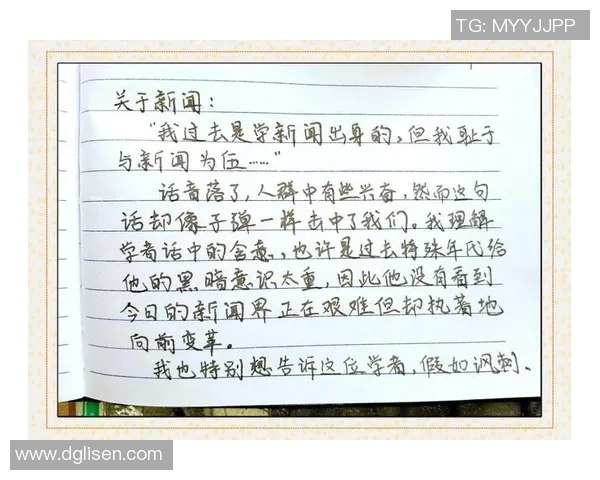 TG: MYYJJPP
关于新闻：
“我过去是学新闻出身的，但我耻于
与新闻为伍……”
话音落了，人群中有些兴奋，然而这句
话却像子弹一样击中了我们。我理解
学者话中的含意，也许是过去特殊年代给
他的黑暗意识太重，因此他没有看到
今日的新闻界正在艰难但却执着地
向前变革。
我也特别想告诉这位学者，假如讽刺、
www.dglisen.com